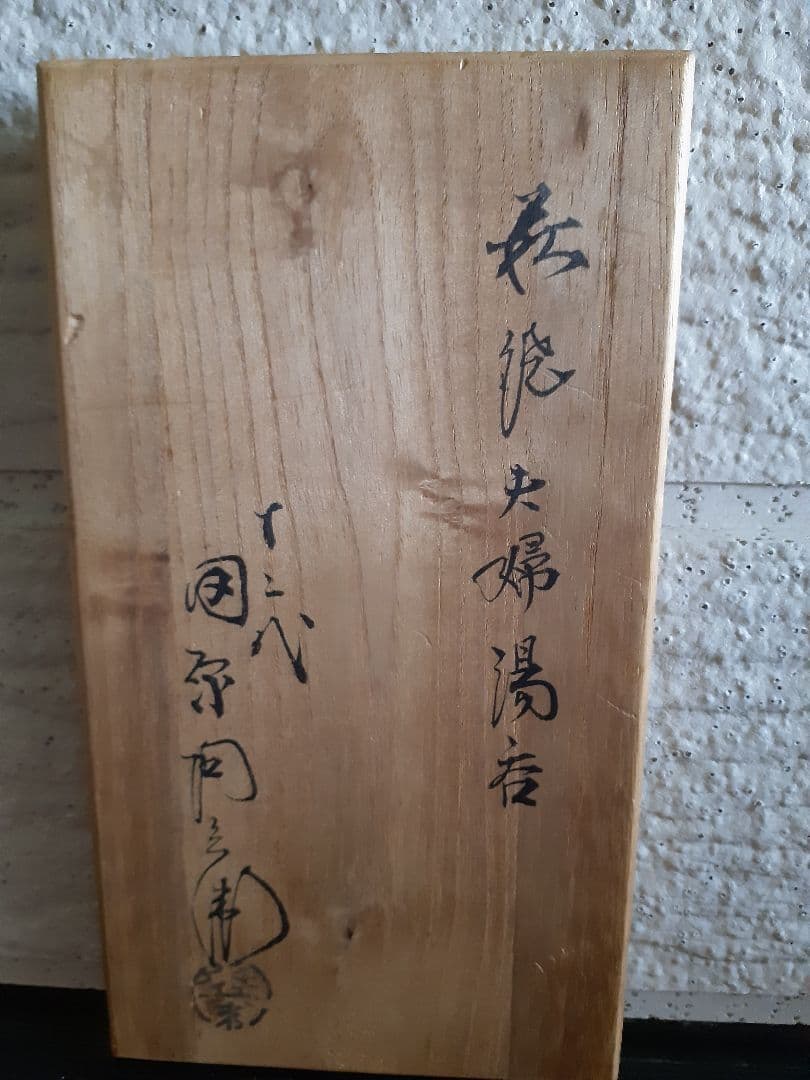 萩焼夫婦湯呑
十二代
田原陶兵衛